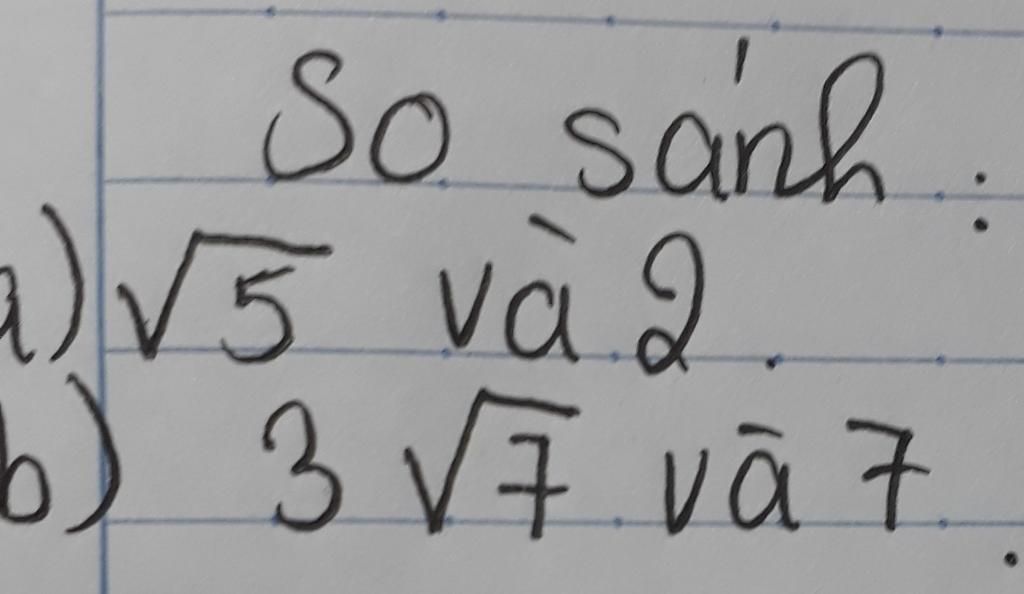 So sánh :
a) √5 và 2.
b) 3 √7 và 7.